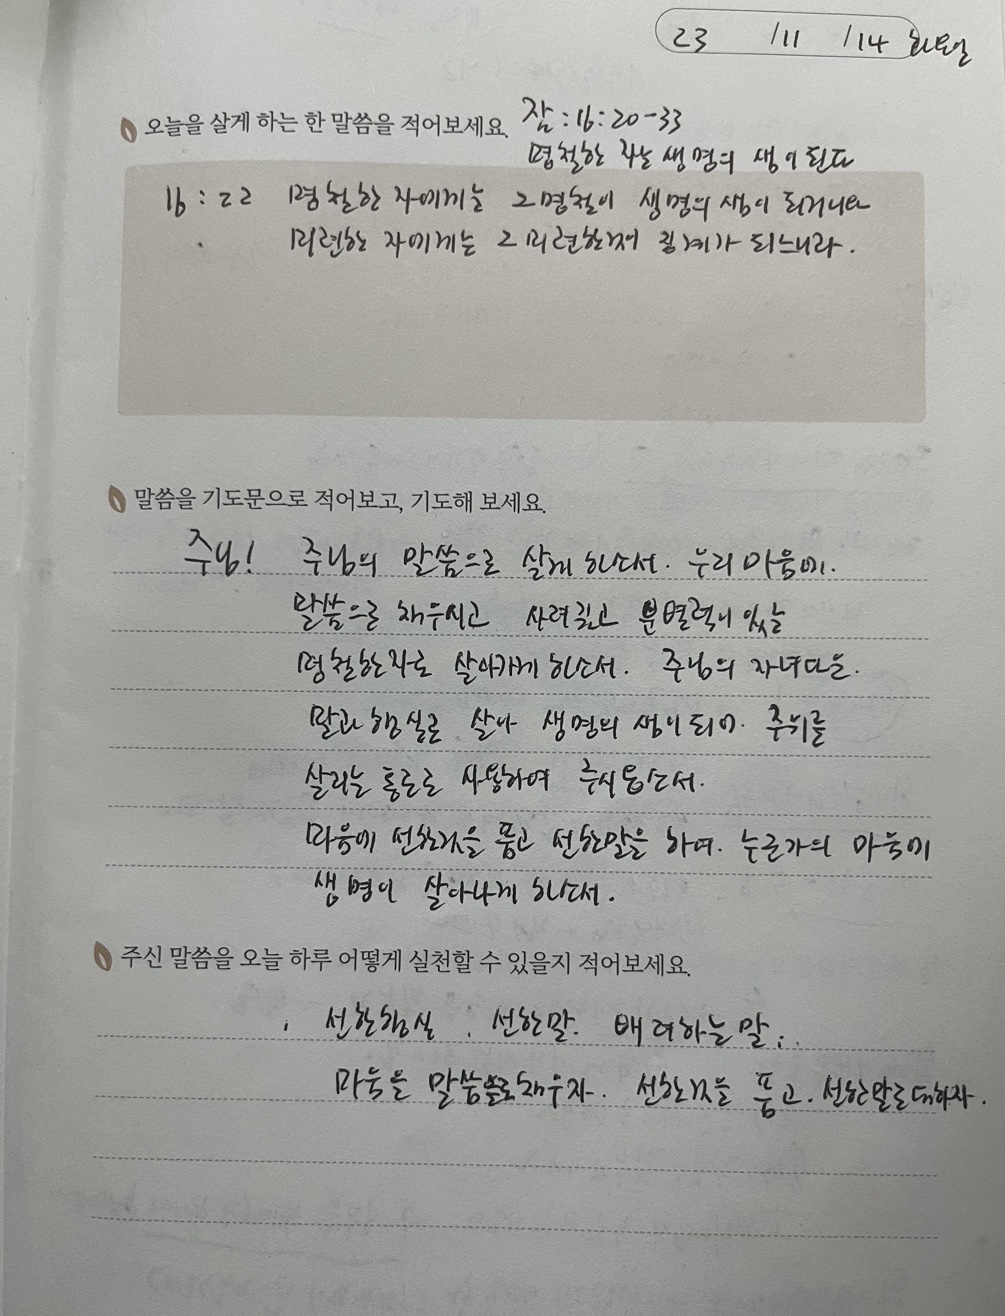 23 /11 /14 화요일
오늘을 살게 하는 한 말씀을 적어보세요. 잠:16:20-33
명철한 자는 생명의 샘이 된다
16:22 명철한 자에게는 그 명철이 생명의 샘이 되거니와
미련한 자에게는 그 미련한것이 징계가 되느니라.
말씀을 기도문으로 적어보고, 기도해 보세요.
주님! 주님의 말씀으로 살게 하소서. 우리 마음에.
말씀으로 채우시고 사려깊고 분별력이 있는
명철한자로 살아가게 하소서. 주님의 자녀다운.
말과 행실로 살아 생명의 샘이 되어. 주위를
살리는 통로로 사용하여 주시옵소서.
마음에 선한것을 품고 선한말을 하여. 누군가의 마음에
생명이 살아나게 하소서.
주신 말씀을 오늘 하루 어떻게 실천할 수 있을지 적어보세요.
선한행실. 선한말. 배려하는 말..
마음을 말씀으로 채우자. 선한것을 품고. 선한말로 대하자.